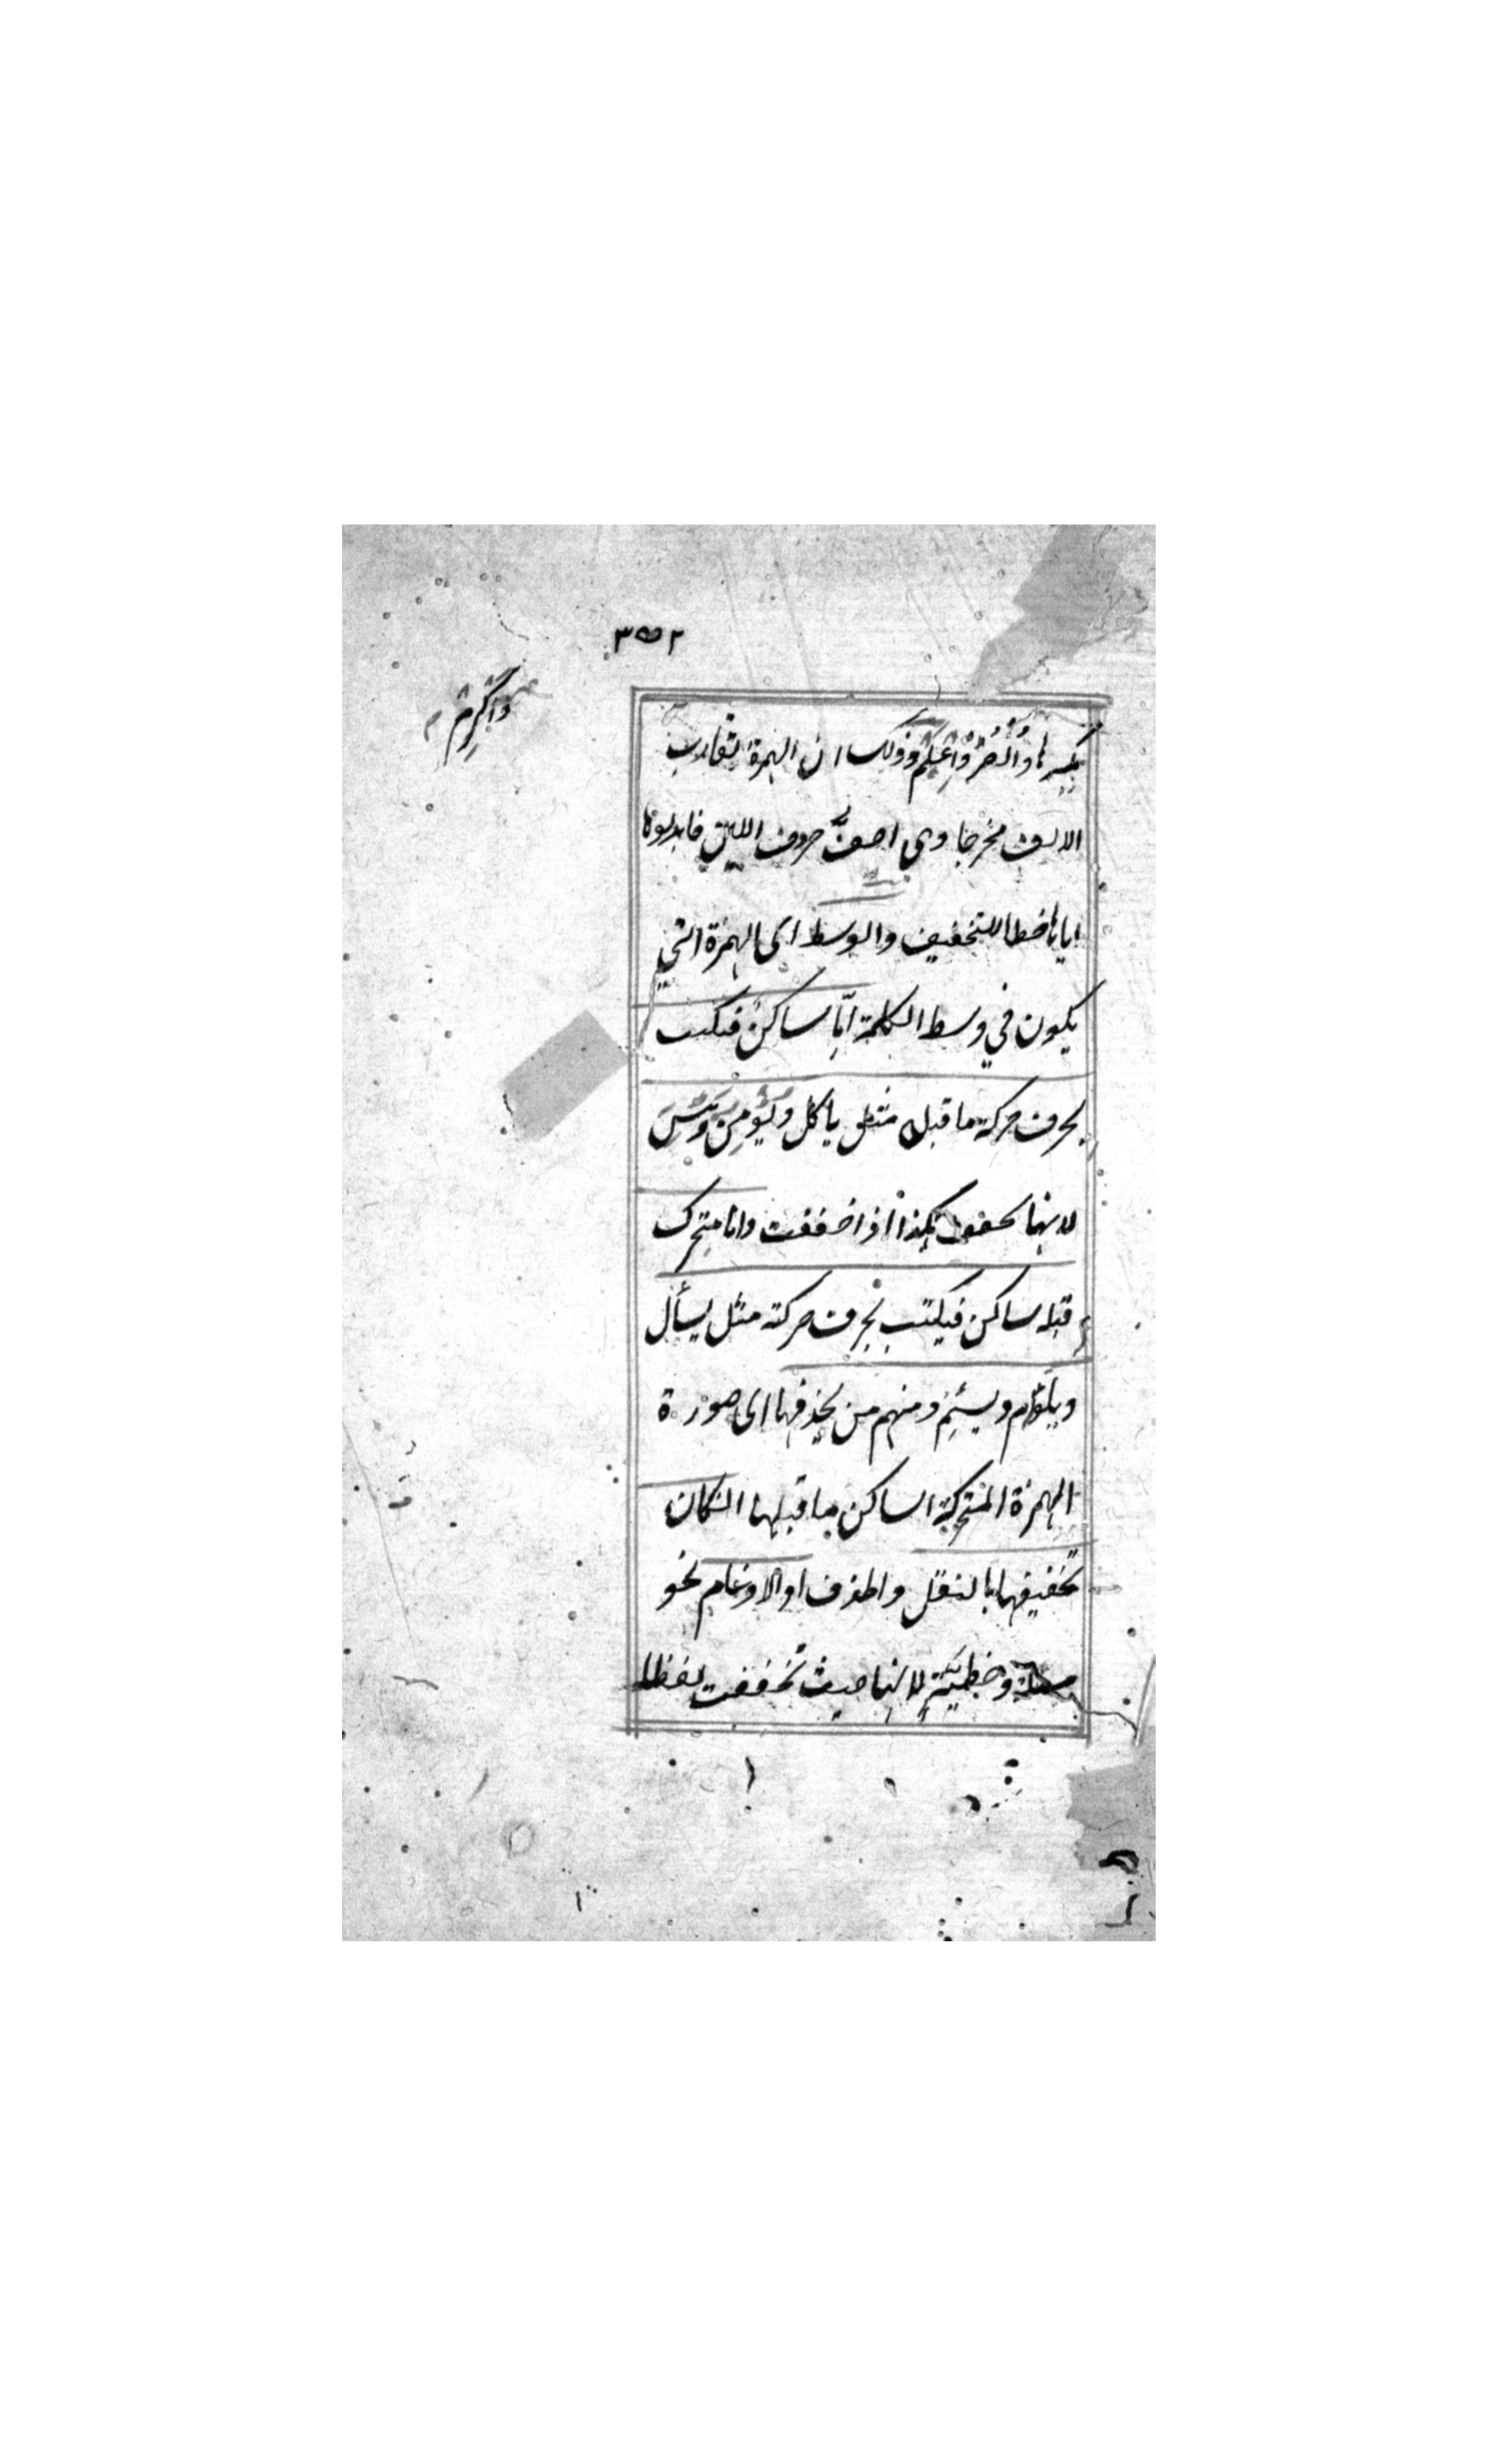 ٣٥٢
واكرم
بكسرها وانصر واعلم وذلك ان الهمزة تقارب
الالف مخرجا وهي اخف حروف اللين فابدلوها
اياها خطا للتخفيف والوسط اى الهمزة التي
يكون في وسط الكلمة اما ساكن فيكتب
بحرف حركة ما قبله مثل ياكل ويؤمن وبئس
لانها تخفف هكذا اذا خففت واما متحرك
قبله ساكن فيكتب بحرف حركته مثل يسأل
ويلؤم ويسئم ومنهم من يحذفها اى صورة
الهمزة المتحركة الساكن ما قبلها ان كان
تخفيفها بالنقل والحذف او الادغام نحو
وخطيئة لانها حيث تخففت لفظا